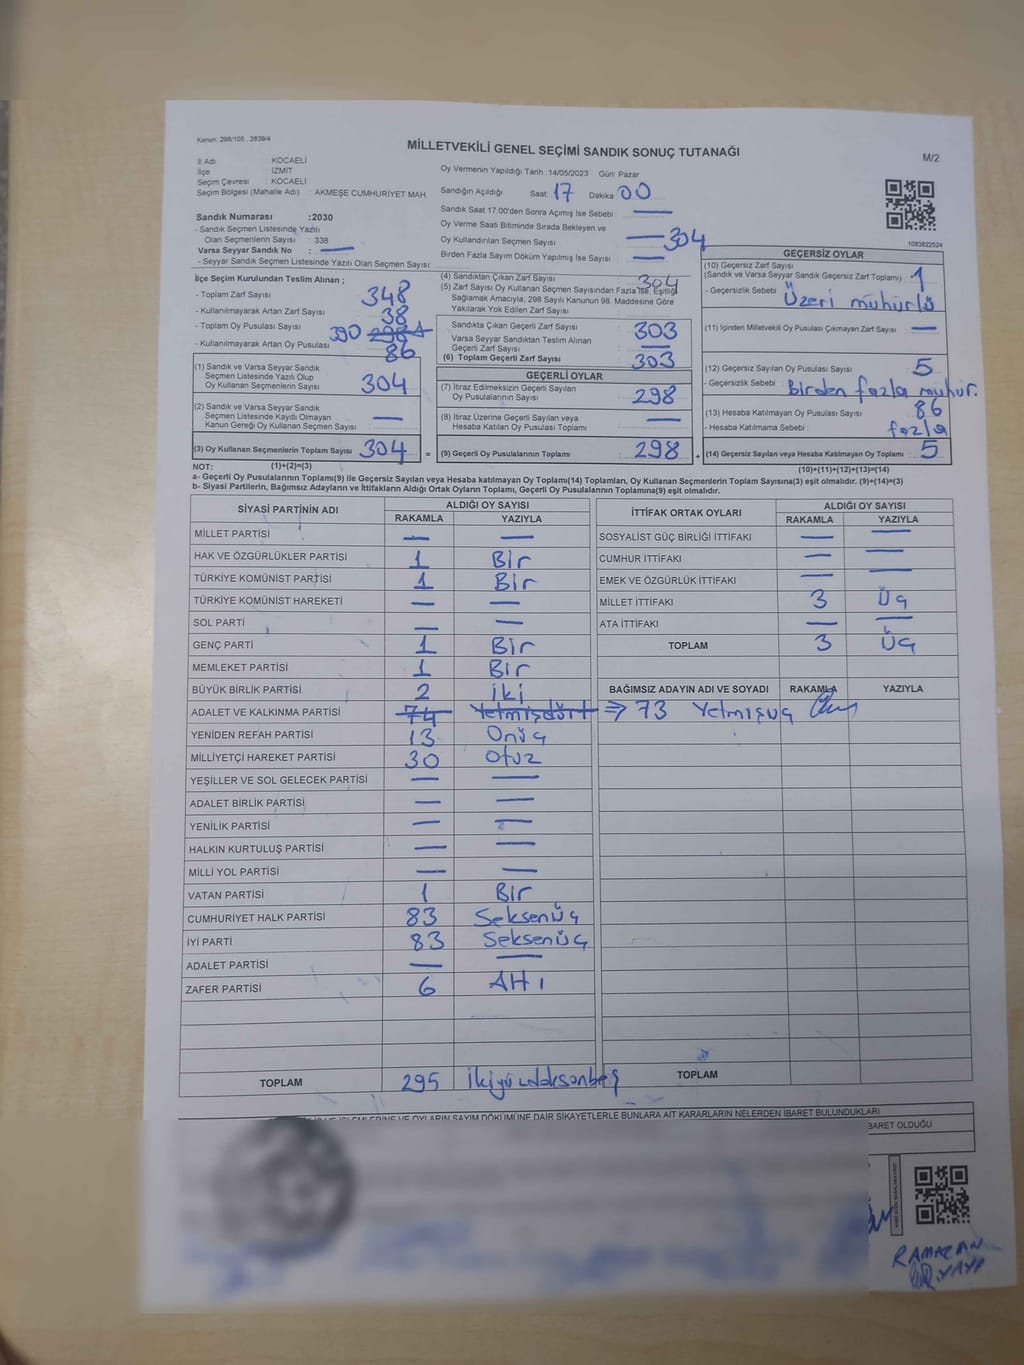 Kanun: 298/105 , 2839/4
MİLLETVEKİLİ GENEL SEÇİMİ SANDIK SONUÇ TUTANAĞI
M/2
İl Adı : KOCAELİ
İlçe : İZMİT
Seçim Çevresi : KOCAELİ
Seçim Bölgesi (Mahalle Adı) : AKMEŞE CUMHURİYET MAH.
Sandık Numarası :2030
- Sandık Seçmen Listesinde Yazılı
Olan Seçmenlerin Sayısı : 338
Varsa Seyyar Sandık No : —
- Seyyar Sandık Seçmen Listesinde Yazılı Olan Seçmen Sayısı:
Oy Vermenin Yapıldığı Tarih :14/05/2023 Gün: Pazar
Sandığın Açıldığı Saat: 17 Dakika: 00
Sandık Saat 17.00'den Sonra Açılmış İse Sebebi : —
Oy Verme Saati Bitiminde Sırada Bekleyen ve
Oy Kullandırılan Seçmen Sayısı — 304
Birden Fazla Sayım Döküm Yapılmış İse Sayısı : —
1083822524
İlçe Seçim Kurulundan Teslim Alınan ;
- Toplam Zarf Sayısı 348
- Kullanılmayarak Artan Zarf Sayısı 38
- Toplam Oy Pusulası Sayısı 390
- Kullanılmayarak Artan Oy Pusulası 86
(1) Sandık ve Varsa Seyyar Sandık
Seçmen Listesinde Yazılı Olup
Oy Kullanan Seçmenlerin Sayısı : 304
(2) Sandık ve Varsa Seyyar Sandık
Seçmen Listesinde Kayıtlı Olmayan
Kanun Gereği Oy Kullanan Seçmen Sayısı : —
(3) Oy Kullanan Seçmenlerin Toplam Sayısı : 304 =
(4) Sandıktan Çıkan Zarf Sayısı : 304
(5) Zarf Sayısı Oy Kullanan Seçmen Sayısından Fazla ise, Eşitliği
Sağlamak Amacıyla, 298 Sayılı Kanunun 98. Maddesine Göre
Yakılarak Yok Edilen Zarf Sayısı :
Sandıkta Çıkan Geçerli Zarf Sayısı : 303
Varsa Seyyar Sandıktan Teslim Alınan
Geçerli Zarf Sayısı : —
(6) Toplam Geçerli Zarf Sayısı : 303
GEÇERLİ OYLAR
(7) İtiraz Edilmeksizin Geçerli Sayılan
Oy Pusulalarının Sayısı : 298
(8) İtiraz Üzerine Geçerli Sayılan veya
Hesaba Katılan Oy Pusulası Toplamı : —
(9) Geçerli Oy Pusulalarının Toplamı : 298 +
GEÇERSİZ OYLAR
(10) Geçersiz Zarf Sayısı
(Sandık ve Varsa Seyyar Sandık Geçersiz Zarf Toplamı) : 1
- Geçersizlik Sebebi : Üzeri mühürlü
(11) İçinden Milletvekili Oy Pusulası Çıkmayan Zarf Sayısı : —
(12) Geçersiz Sayılan Oy Pusulası Sayısı : 5
- Geçersizlik Sebebi : Birden fazla mühür.
(13) Hesaba Katılmayan Oy Pusulası Sayısı : 86
- Hesaba Katılmama Sebebi : fazla
(14) Geçersiz Sayılan veya Hesaba Katılmayan Oy Toplamı : 5
NOT: (1)+(2)=(3)
(10)+(11)+(12)+(13)=(14)
a- Geçerli Oy Pusulalarının Toplamı(9) ile Geçersiz Sayılan veya Hesaba Katılmayan Oy Toplamı(14) Toplamları, Oy Kullanan Seçmenlerin Toplam Sayısına(3) eşit olmalıdır. (9)+(14)=(3)
b- Siyasi Partilerin, Bağımsız Adayların ve İttifakların Aldığı Ortak Oyların Toplamı, Geçerli Oy Pusulalarının Toplamına(9) eşit olmalıdır.
SİYASİ PARTİNİN ADI ALDIĞI OY SAYISI
RAKAMLA YAZIYLA
MİLLET PARTİSİ — —
HAK VE ÖZGÜRLÜKLER PARTİSİ 1 Bir
TÜRKİYE KOMÜNİST PARTİSİ 1 Bir
TÜRKİYE KOMÜNİST HAREKETİ — —
SOL PARTİ — —
GENÇ PARTİ 1 Bir
MEMLEKET PARTİSİ 1 Bir
BÜYÜK BİRLİK PARTİSİ 2 iki
ADALET VE KALKINMA PARTİSİ 74 Yetmişdört ⇒ 73 Yetmişüç
YENİDEN REFAH PARTİSİ 13 Onüç
MİLLİYETÇİ HAREKET PARTİSİ 30 Otuz
YEŞİLLER VE SOL GELECEK PARTİSİ — —
ADALET BİRLİK PARTİSİ — —
YENİLİK PARTİSİ — —
HALKIN KURTULUŞ PARTİSİ — —
MİLLİ YOL PARTİSİ — —
VATAN PARTİSİ 1 Bir
CUMHURİYET HALK PARTİSİ 83 Seksenüç
İYİ PARTİ 83 Seksenüç
ADALET PARTİSİ — —
ZAFER PARTİSİ 6 Altı
TOPLAM 295 ikiyüzdoksanbeş
İTTİFAK ORTAK OYLARI ALDIĞI OY SAYISI
RAKAMLA YAZIYLA
SOSYALİST GÜÇ BİRLİĞİ İTTİFAKI — —
CUMHUR İTTİFAKI — —
EMEK VE ÖZGÜRLÜK İTTİFAKI — —
MİLLET İTTİFAKI 3 Üç
ATA İTTİFAKI — —
TOPLAM 3 Üç
BAĞIMSIZ ADAYIN ADI VE SOYADI RAKAMLA YAZIYLA
TOPLAM
İŞLEMLERİNE VE OYLARIN SAYIM DÖKÜMÜNE DAİR ŞİKAYETLERLE BUNLARA AİT KARARLARIN NELERDEN İBARET BULUNDUKLARI
BARET OLDUĞU
RAMAZAN